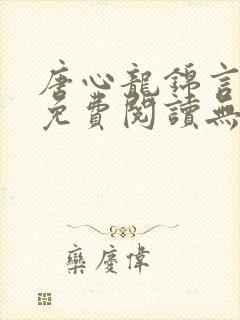 唐心龍錦言
免費閱讀無
欒慶偉